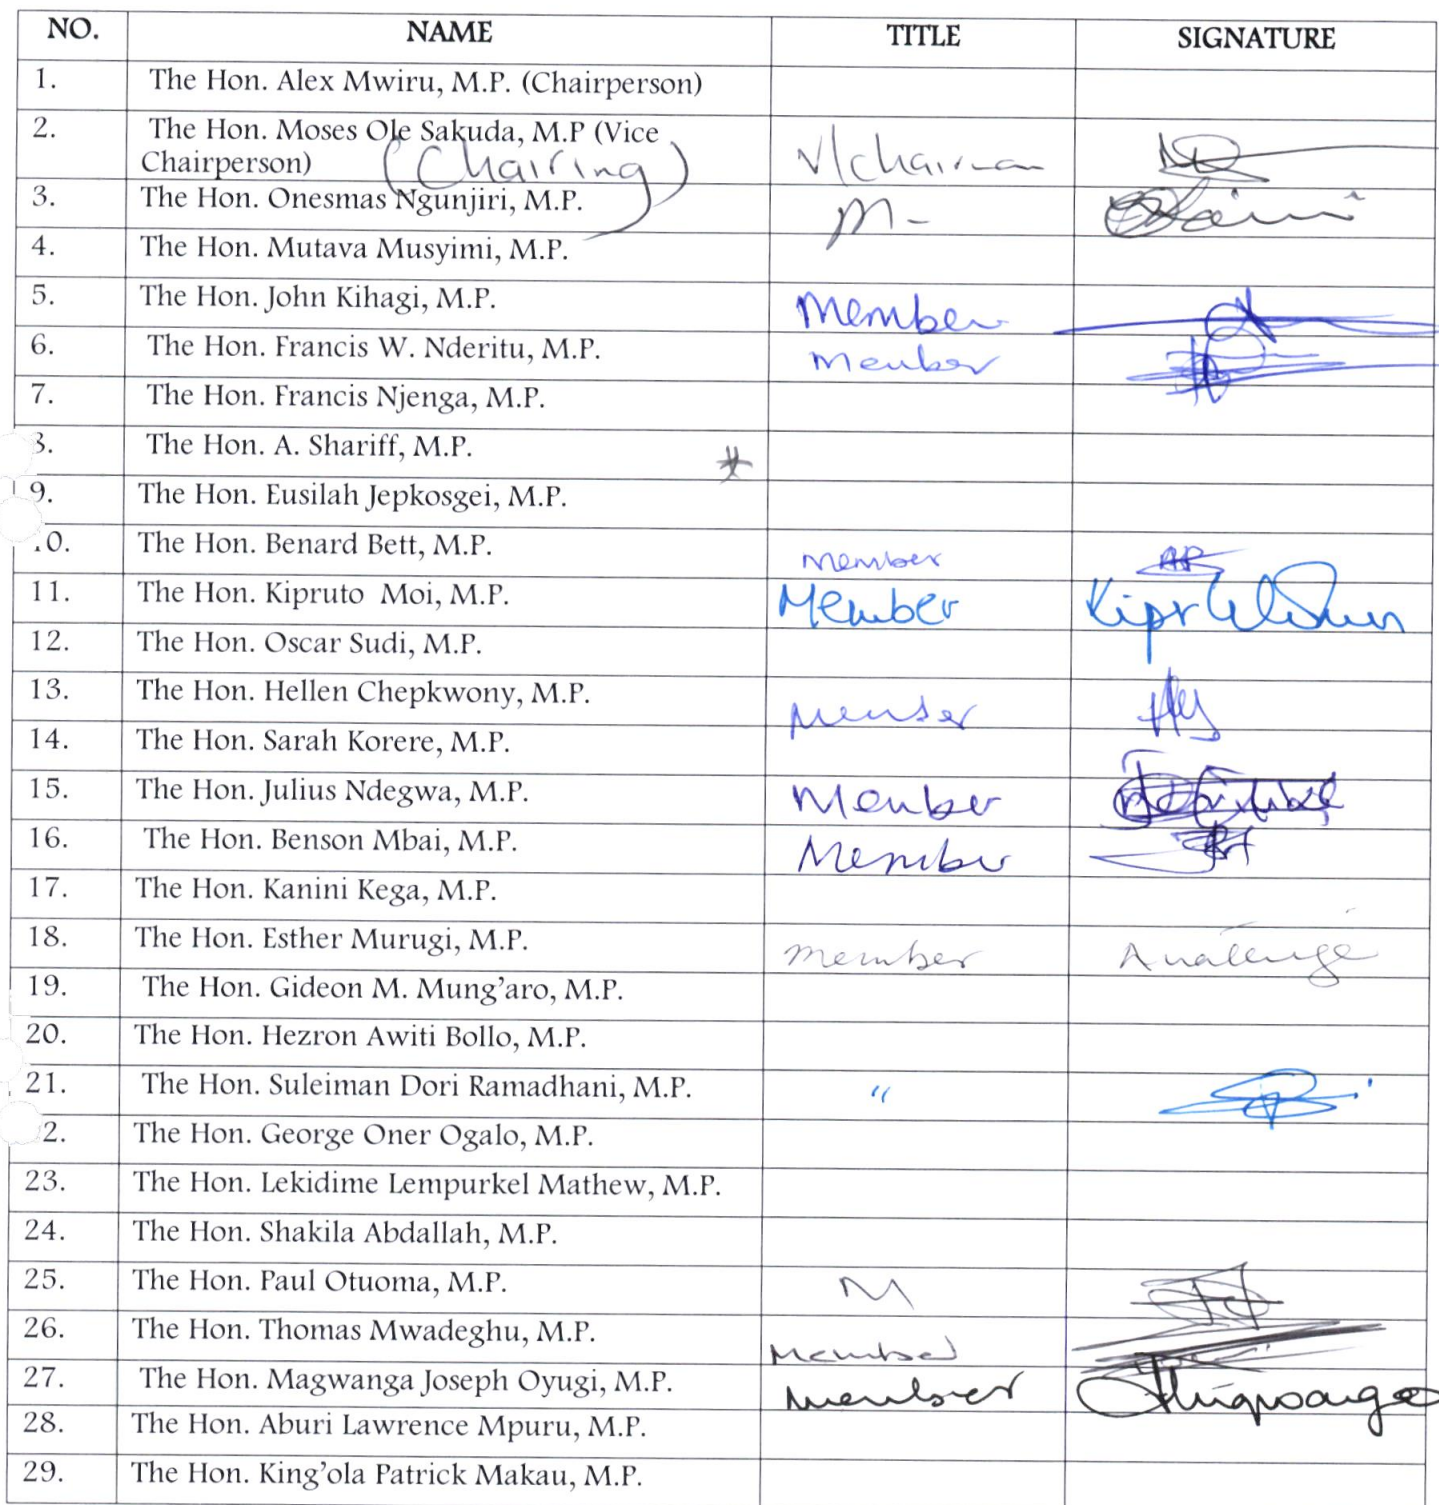 NO. NAME TITLE SIGNATURE
1. The Hon. Alex Mwiru, M.P. (Chairperson)
2. The Hon. Moses Ole Sakuda, M.P (Vice
Chairperson) (Chairing) V/Chairman
3. The Hon. Onesmas Ngunjiri, M.P. M-
4. The Hon. Mutava Musyimi, M.P.
5. The Hon. John Kihagi, M.P. Member
6. The Hon. Francis W. Nderitu, M.P. Member
7. The Hon. Francis Njenga, M.P.
8. The Hon. A. Shariff, M.P. *
9. The Hon. Eusilah Jepkosgei, M.P.
10. The Hon. Benard Bett, M.P. Member
11. The Hon. Kipruto Moi, M.P. Member
12. The Hon. Oscar Sudi, M.P.
13. The Hon. Hellen Chepkwony, M.P. Member
14. The Hon. Sarah Korere, M.P.
15. The Hon. Julius Ndegwa, M.P. Member
16. The Hon. Benson Mbai, M.P. Member
17. The Hon. Kanini Kega, M.P.
18. The Hon. Esther Murugi, M.P. Member
19. The Hon. Gideon M. Mung'aro, M.P.
20. The Hon. Hezron Awiti Bollo, M.P.
21. The Hon. Suleiman Dori Ramadhani, M.P. "
22. The Hon. George Oner Ogalo, M.P.
23. The Hon. Lekidime Lempurkel Mathew, M.P.
24. The Hon. Shakila Abdallah, M.P.
25. The Hon. Paul Otuoma, M.P. M
26. The Hon. Thomas Mwadeghu, M.P. Member
27. The Hon. Magwanga Joseph Oyugi, M.P. Member
28. The Hon. Aburi Lawrence Mpuru, M.P.
29. The Hon. King'ola Patrick Makau, M.P.